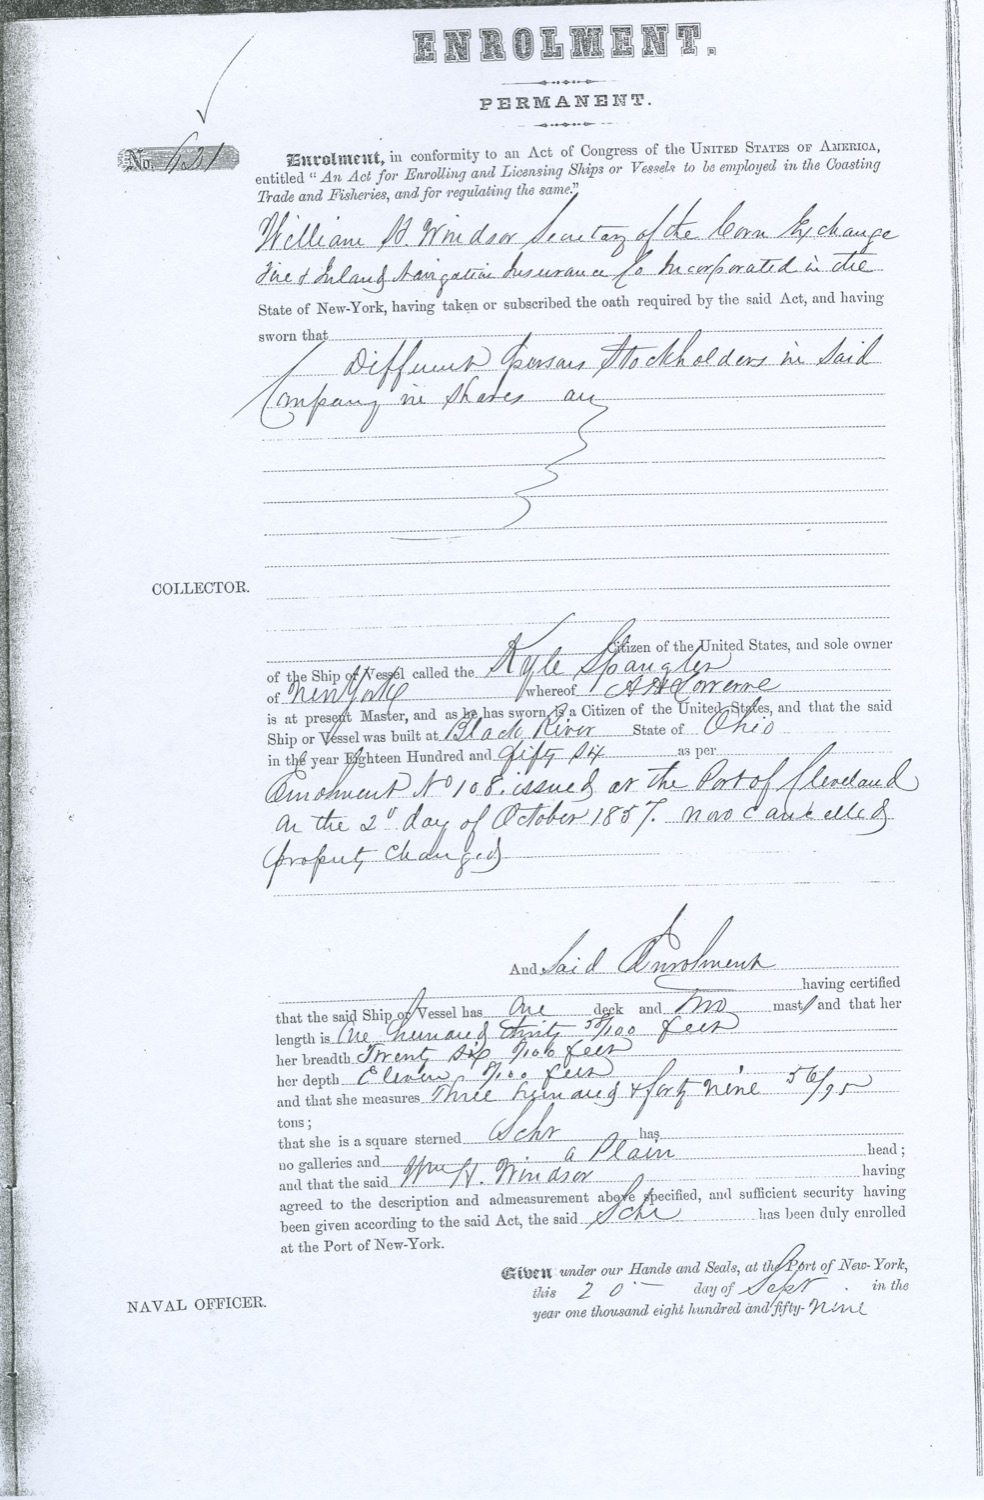 ENROLMENT.
PERMANENT.
No. 421
Enrolment, in conformity to an Act of Congress of the UNITED STATES OF AMERICA,
entitled "An Act for Enrolling and Licensing Ships or Vessels to be employed in the Coasting
Trade and Fisheries, and for regulating the same."
William H. Windsor Secretary of the Corn Exchange
Fire & Inland Navigation Insurance Co Incorporated in the
State of New-York, having taken or subscribed the oath required by the said Act, and having
sworn that
Different persons Stockholders in Said
Company in shares are
COLLECTOR.
Citizen of the United States, and sole owner
of the Ship or Vessel called the Kyle Spangler
of New York whereof
is at present Master, and as he has sworn, is a Citizen of the United States, and that the said
Ship or Vessel was built at Black River State of Ohio
in the year Eighteen Hundred and Fifty Six as per
Enrolment No 108. issued at the Port of Cleveland
on the 2d day of October 1857. now cancelled
property changed
And Said Enrolment
having certified
that the said Ship or Vessel has One deck and Two mast and that her
length is One hundred thirty 58/100 feet
her breadth Twenty six 9/100 feet
her depth Eleven /100 feet
and that she measures Three hundred & forty nine 56/95
tons;
that she is a square sterned Schr has
no galleries and a Plain head;
and that the said Wm H. Windsor having
agreed to the description and admeasurement above specified, and sufficient security having
been given according to the said Act, the said Schr has been duly enrolled
at the Port of New-York.
Given under our Hands and Seals, at the Port of New-York,
this 20 day of Sept in the
year one thousand eight hundred and fifty-nine
NAVAL OFFICER.